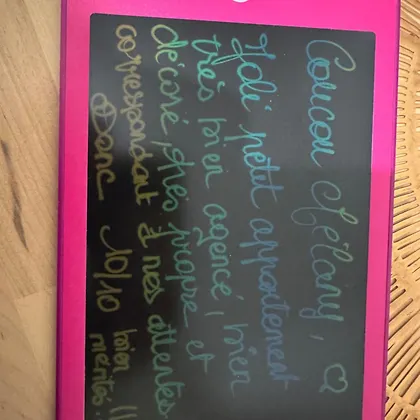 Coucou Mélany, ♡
Joli petit appartement
très bien agencé, bien
décoré, très propre et
correspondant à mes attentes
Donc 10/10 bien
mérités !!